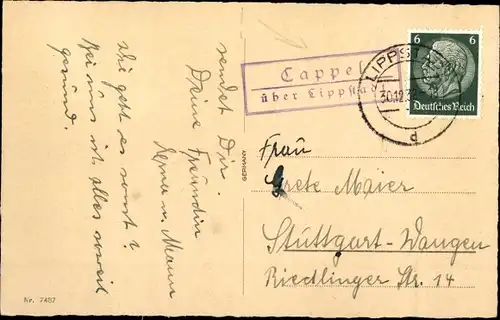 sendet Dir
Deine Freundin
Erna u. Mann
Wie geht es sonst?
Bei uns ist alles soweit
gesund.
Nr. 7487
Cappel
über Lippstadt
LIPPSTADT
30.12.3
d
6 6
Deutsches Reich
Frau
Grete Maier
Stuttgart-Wangen
Riedlinger Str. 14